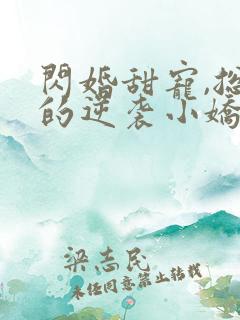 閃婚甜寵,總
的逆袭小嬌
梁志民
未经同意禁止转载